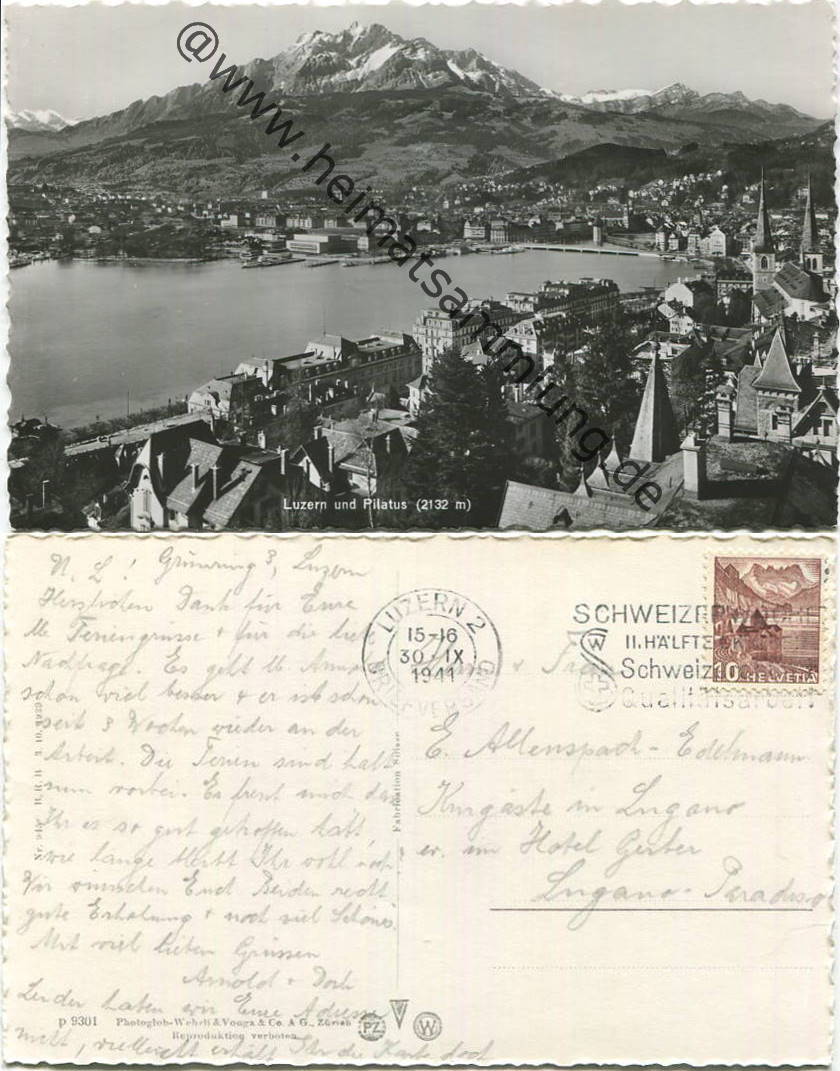 @www.heimatsammlung.de
Luzern und Pilatus (2132 m)
N. L! Grünring 3, Luzern
Herzlichen Dank für Eure
lb. Feriengrüsse + für die liebe
Nachfrage. Es geht lb. Arnold
schon viel besser & er ist schon
seit 3 Wochen wieder an der
Arbeit. Die Ferien sind halt
nun vorbei. Es freut mich dass
Ihr es so gut getroffen habt,
wie lange bleibt Ihr wohl noch
Wir wünschen Euch Beiden recht
gute Erholung & noch viel Schönes.
Mit viel lieben Grüssen
Arnold &
Leider haben wir Eure Adresse
nicht, vielleicht erhält Ihr die Karte doch
B.R.B 3.10.1939
Fabrication Suisse
p 9301 Photoglob-Wehrli & Vouga & Co. A G., Zürich
Reproduktion verboten.
PZ
W
LUZERN 2
15-16
30. IX
1941
BRIEFVERSAND
SCHWEIZERWOCHE
II. HÄLFTE OKT
Schweizer
Qualitätsarbeit
10 HELVETIA
& Frau
E. Allenspach-Edelmann
Kurgäste in Lugano
ev. im Hotel Gerber
Lugano-Paradiso